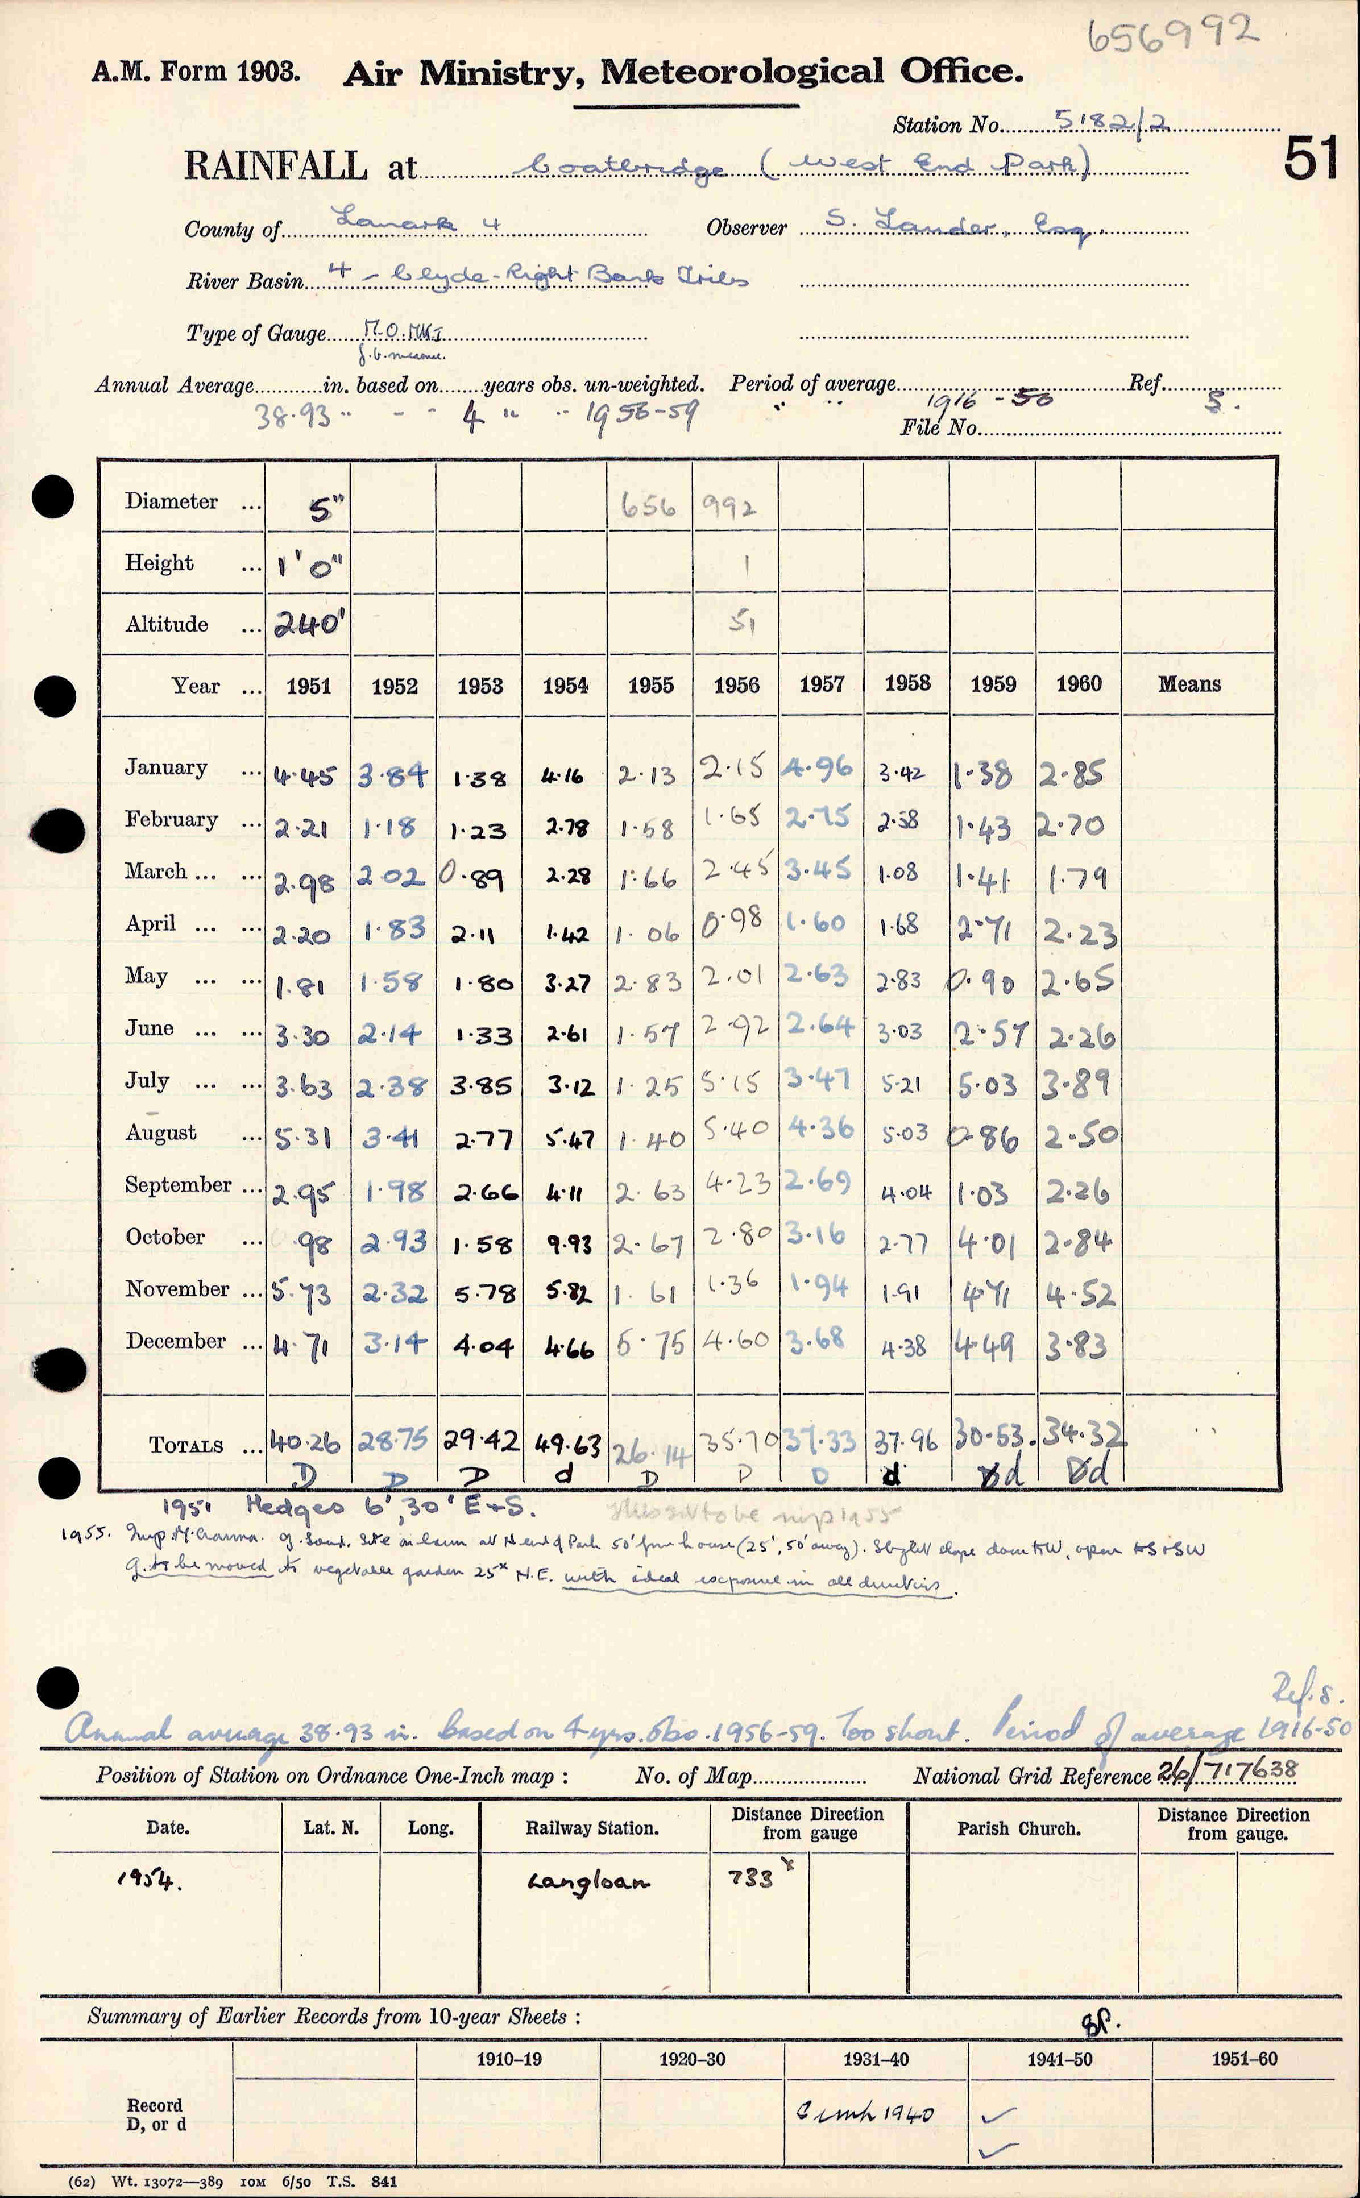 656992
A.M. Form 1903. Air Ministry, Meteorological Office.
Station No. 5182/2
51
RAINFALL at Coatbridge (West End Park)
County of Lanark 4 Observer S. Lander, Esq.
River Basin 4 - Clyde-Right Bank Tribs
Type of Gauge M.O. MKI
Annual Average in. based on years obs. un-weighted. Period of average 1916-50 Ref. S.
38.93 " - - 4 " " 1956-59 " "
File No.
Diameter ... 5" 656 992
Height ... 1' 0" 1
Altitude ... 240' 51
Year ... 1951 1952 1953 1954 1955 1956 1957 1958 1959 1960 Means
January ... 4.45 3.84 1.38 4.16 2.13 2.15 4.96 3.42 1.38 2.85
February ... 2.21 1.18 1.23 2.78 1.58 1.65 2.75 2.58 1.43 2.70
March ... ... 2.98 2.02 0.89 2.28 1.66 2.45 3.45 1.08 1.41 1.79
April ... ... 2.20 1.83 2.11 1.42 1.06 0.98 1.60 1.68 2.71 2.23
May ... ... 1.81 1.58 1.80 3.27 2.83 2.01 2.63 2.83 0.90 2.65
June ... ... 3.30 2.14 1.33 2.61 1.57 2.92 2.64 3.03 2.57 2.26
July ... ... 3.63 2.38 3.85 3.12 1.25 5.15 3.47 5.21 5.03 3.89
August ... 5.31 3.41 2.77 5.47 1.40 5.40 4.36 5.03 0.86 2.50
September ... 2.95 1.98 2.66 4.11 2.63 4.23 2.69 4.04 1.03 2.26
October ... .98 2.93 1.58 9.93 2.67 2.80 3.16 2.77 4.01 2.84
November ... 5.73 2.32 5.78 5.82 1.61 1.36 1.94 1.91 4.71 4.52
December ... 4.71 3.14 4.04 4.66 5.75 4.60 3.68 4.38 4.49 3.83
TOTALS ... 40.26 28.75 29.42 49.63 26.14 35.70 37.33 37.96 30.53. 34.32
D D D d D D D d d d
1951 Hedges 6', 30' E+S.
1955. Insp. g. Site on lawn at N end of Park 50' from house (25', 50' away). Slight slope down to W, open to S + SW
g. to be moved to vegetable garden 25x N.E. with ideal exposure in all directions.
Ref. S.
Annual average 38.93 in. based on 4 yrs. obs. 1956-59. Too short. Period of average 1916-50
Position of Station on Ordnance One-Inch map : No. of Map National Grid Reference 26/717638
Date. Lat. N. Long. Railway Station. Distance Direction from gauge Parish Church. Distance Direction from gauge.
1954. Langloan 733x
Summary of Earlier Records from 10-year Sheets :
1910-19 1920-30 1931-40 1941-50 1951-60
Record D, or d 1940 ✓
✓
(62) Wt. 13072—389 10M 6/50 T.S. 841